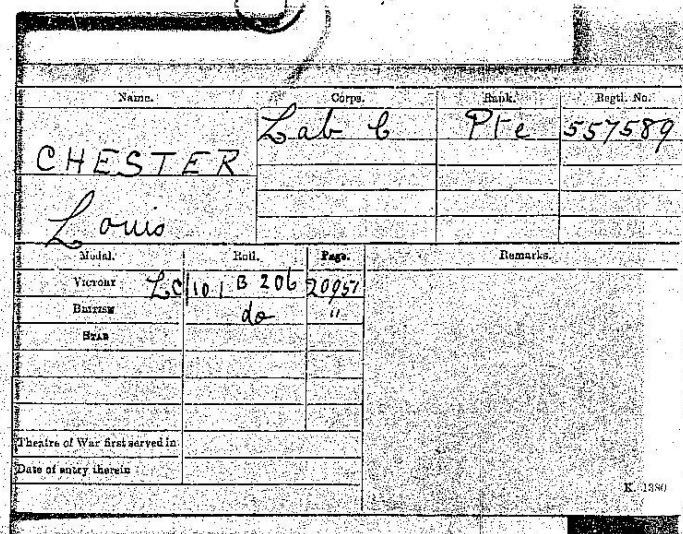 Name. Corps. Rank. Regtl. No.
Lab C Pte 557589
CHESTER
Louis
Medal. Roll. Page. Remarks.
VICTORY LC/101 B 206 20957
BRITISH do "
STAR
Theatre of War first served in
Date of entry therein
K. 1380